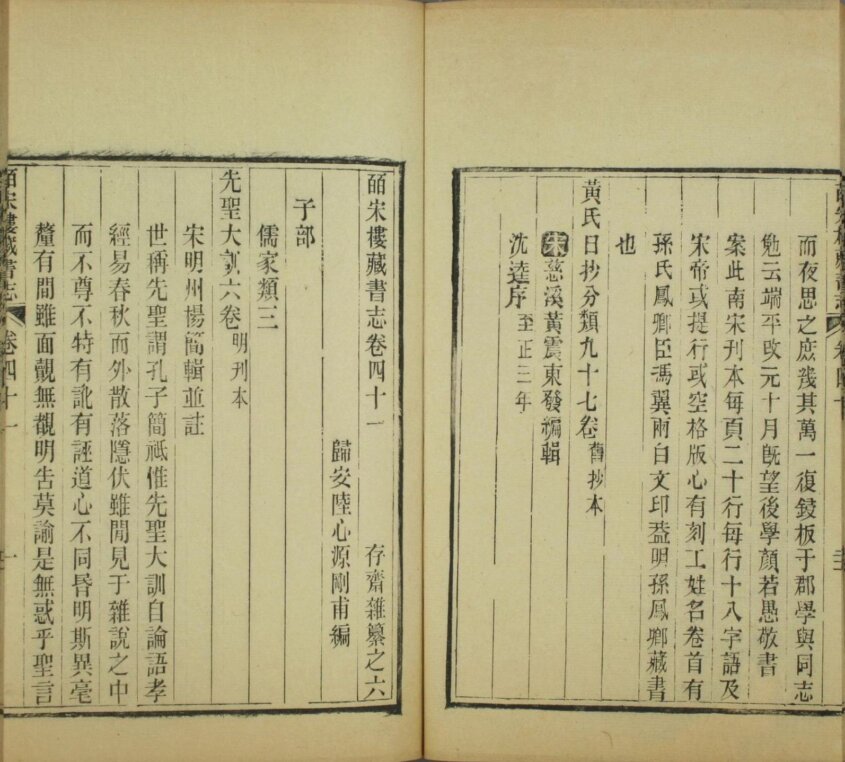 而夜思之庶幾其萬一復鋟板于郡學與同志
勉云端平改元十月旣望後學顏若愚敬書
案此南宋刊本每頁二十行每行十八字語及
宋帝或提行或空格版心有刻工姓名卷首有
孫氏鳳卿臣馮翼兩白文印葢明孫鳳卿藏書
也
黃氏日抄分類九十七卷 舊抄本
宋慈溪黃震東發編輯
沈逵序 至正三年
皕宋樓藏書志卷四十一 存齋雜纂之六
歸安陸心源剛甫編
子部
儒家類三
先聖大訓六卷 明刊本
宋明州楊簡輯並註
世稱先聖謂孔子簡祗惟先聖大訓自論語孝
經易春秋而外散落隱伏雖間見于雜說之中
而不尊不特有訛有誣道心不同昏明斯異毫
釐有間雖面覿無覩明告莫諭是無惑乎聖言
皕宋樓藏書志 卷四十一 一